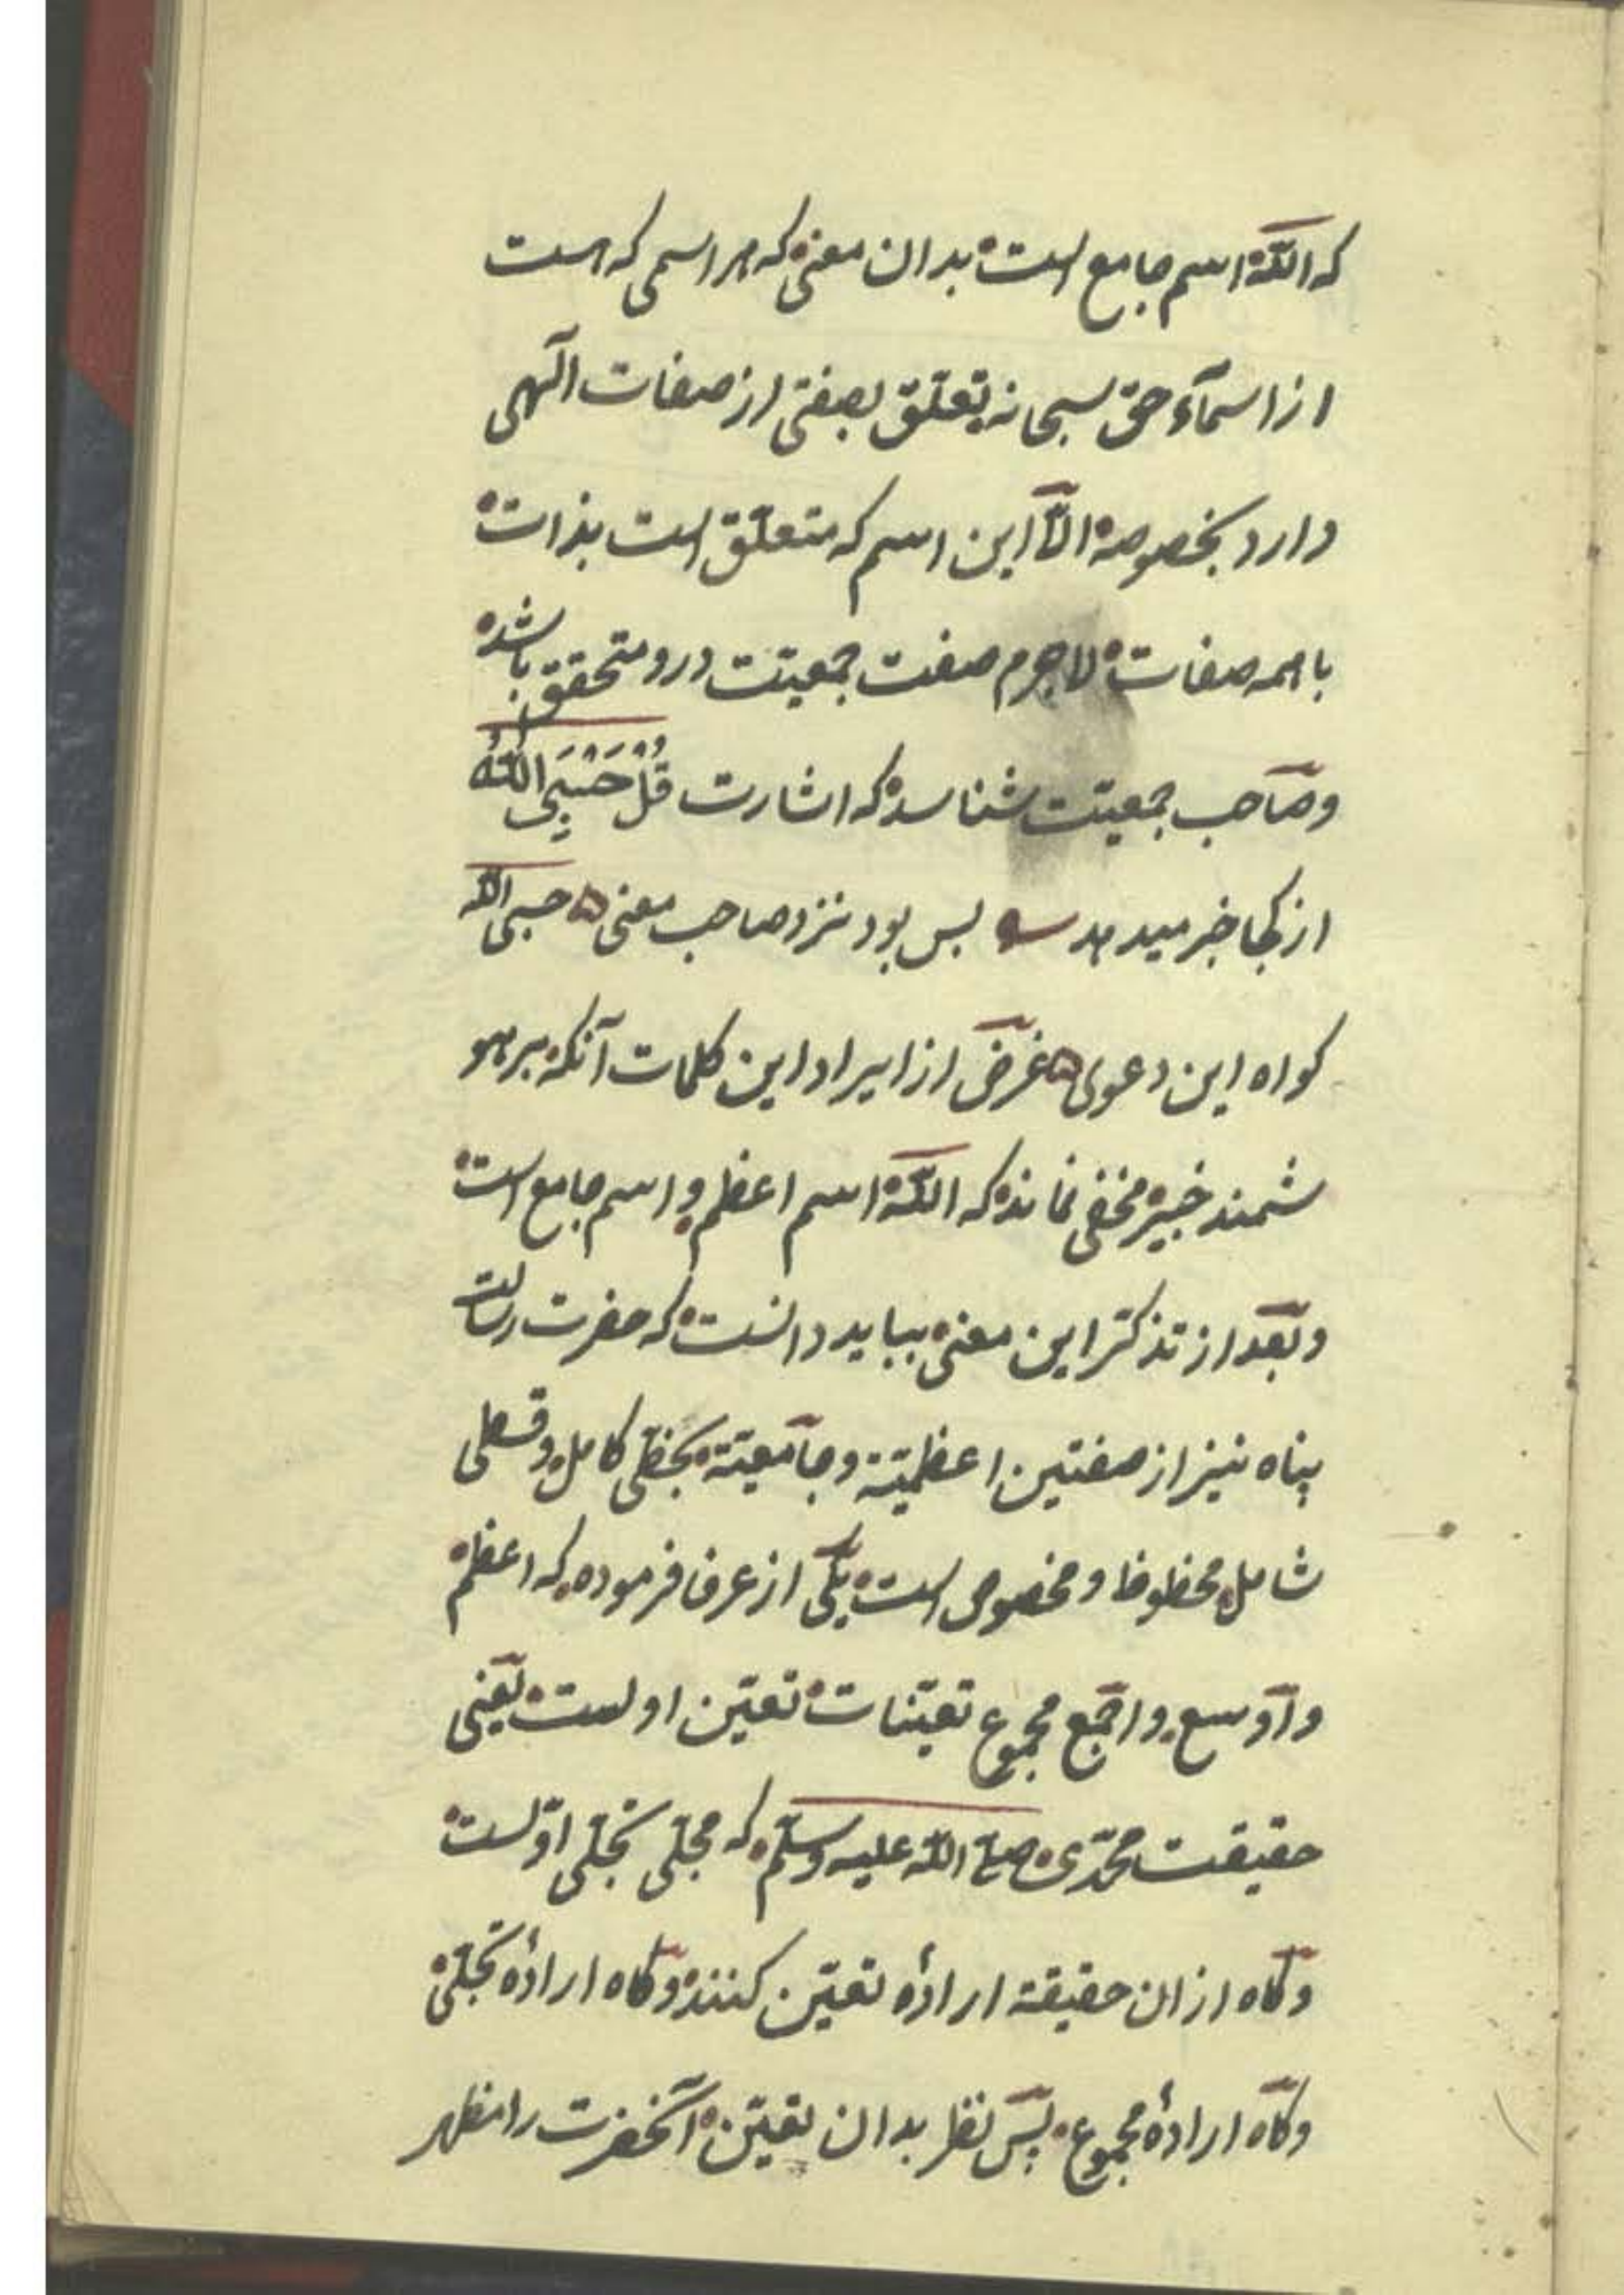 که الله اسم جامع است بدان معنی که هر اسمی که هست
از اسمآء حق سبحانه تعلّق بصفتی از صفات الٓهی
دارد بخصوصه الّا این اسم که متعلّق است بذات
با همه صفات لاجرم صفت جمعیّت درو متحقق باشد
وصاحب جمعیّت شناسد که اشارت قُلْ حَسْبِیَ اللّٰهُ
از کجا خبر میدهد بس بود نزد صاحب معنی حسبی الله
کواه این دعوی غرض از ایراد این کلمات آنکه بر هو
شمند خبیر مخفی نماند که اللّه اسم اعظم و اسم جامع است
وبعد از تذکّر این معنی بباید دانست که حضرت رسالت
پناه نیز از صفتین اعظمیّة وجامعیّة بحظّی کامل وقسطی
شامل محظوظ ومخصوص است یکی از عرفا فرموده که اعظم
واوسع واجمع مجموع تعیّنات تعیّن اولست یعنی
حقیقت محمّدی صلی الله علیه وسلّم که مجلی تجلی اوّلست
وکاه ازان حقیقة ارادهٔ تعیّن کنند وکاه ارادهٔ تجلّی
وکاه ارادهٔ مجموع پس نظر بدان تعیّن آنحضرت را مظهر